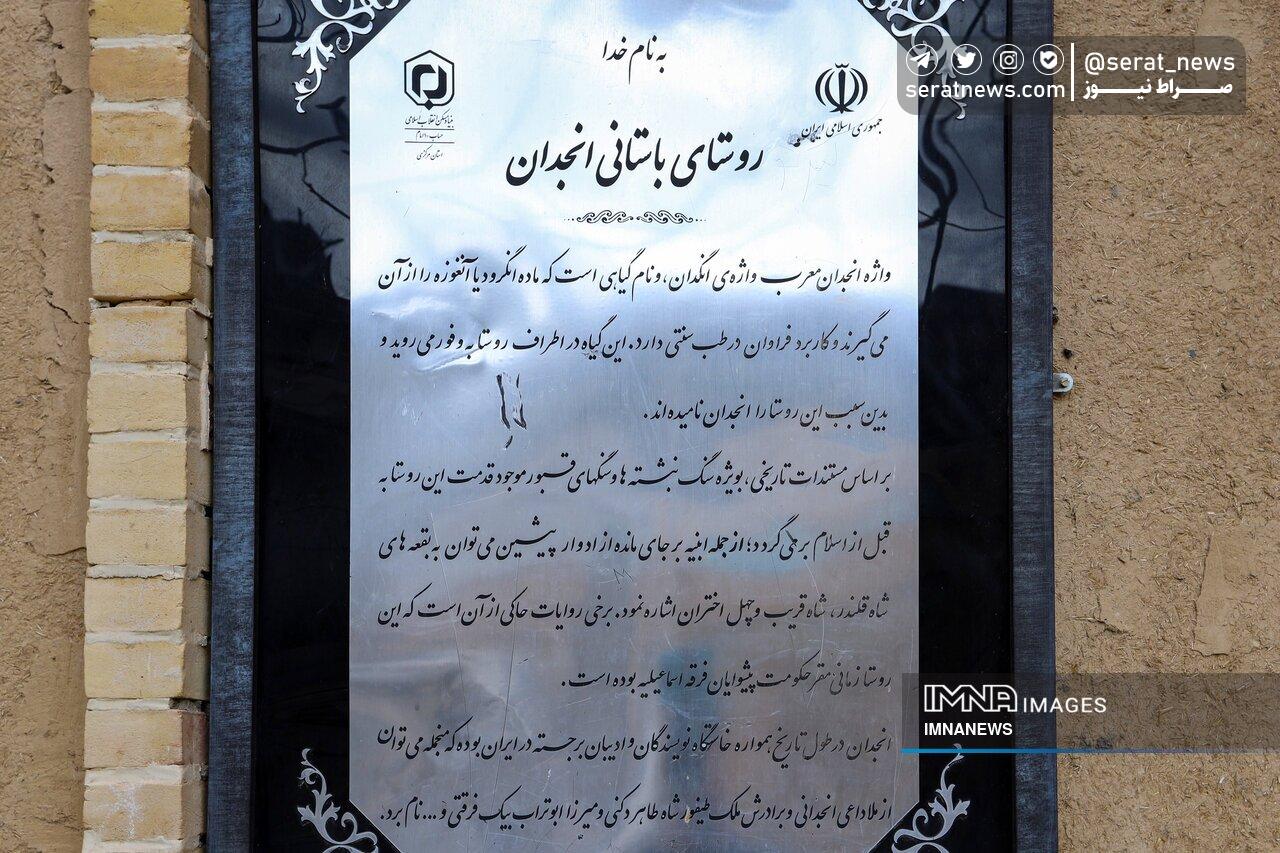 به نام خدا
@serat_news
seratnews.com
صــراط نیــوز
جمهوری اسلامی ایران
بنیاد مسکن انقلاب اسلامی
استان مرکزی
روستای باستانی انجدان
واژه انجدان معرب واژه‌ی انگدان، و نام گیاهی است که ماده انگرود یا آنغوزه را از آن
می گیرند و کاربرد فراوان در طب سنتی دارد. این گیاه در اطراف روستا به وفور می روید و
بدین سبب این روستا را انجدان نامیده اند.
بر اساس مستندات تاریخی، بویژه سنگ نبشته ها و سنگهای قبور موجود قدمت این روستا به
قبل از اسلام بر می گردد؛ از جمله ابنیه بر جای مانده از ادوار پیشین می توان به بقعه های
شاه قلندر، شاه قریب و چهل اختران اشاره نمود. برخی روایات حاکی از آن است که این
روستا زمانی مقر حکومت پیشوایان فرقه اسماعیلیه بوده است.
انجدان در طول تاریخ همواره خاستگاه نویسندگان و ادیبان برجسته در ایران بوده که منجمله می توان
از ملا داعی انجدانی و برادرش ملک طیفور شاه طاهر دکنی و میرزا ابوتراب بیک فرقتی و ... نام برد.
IMNA IMAGES
IMNANEWS